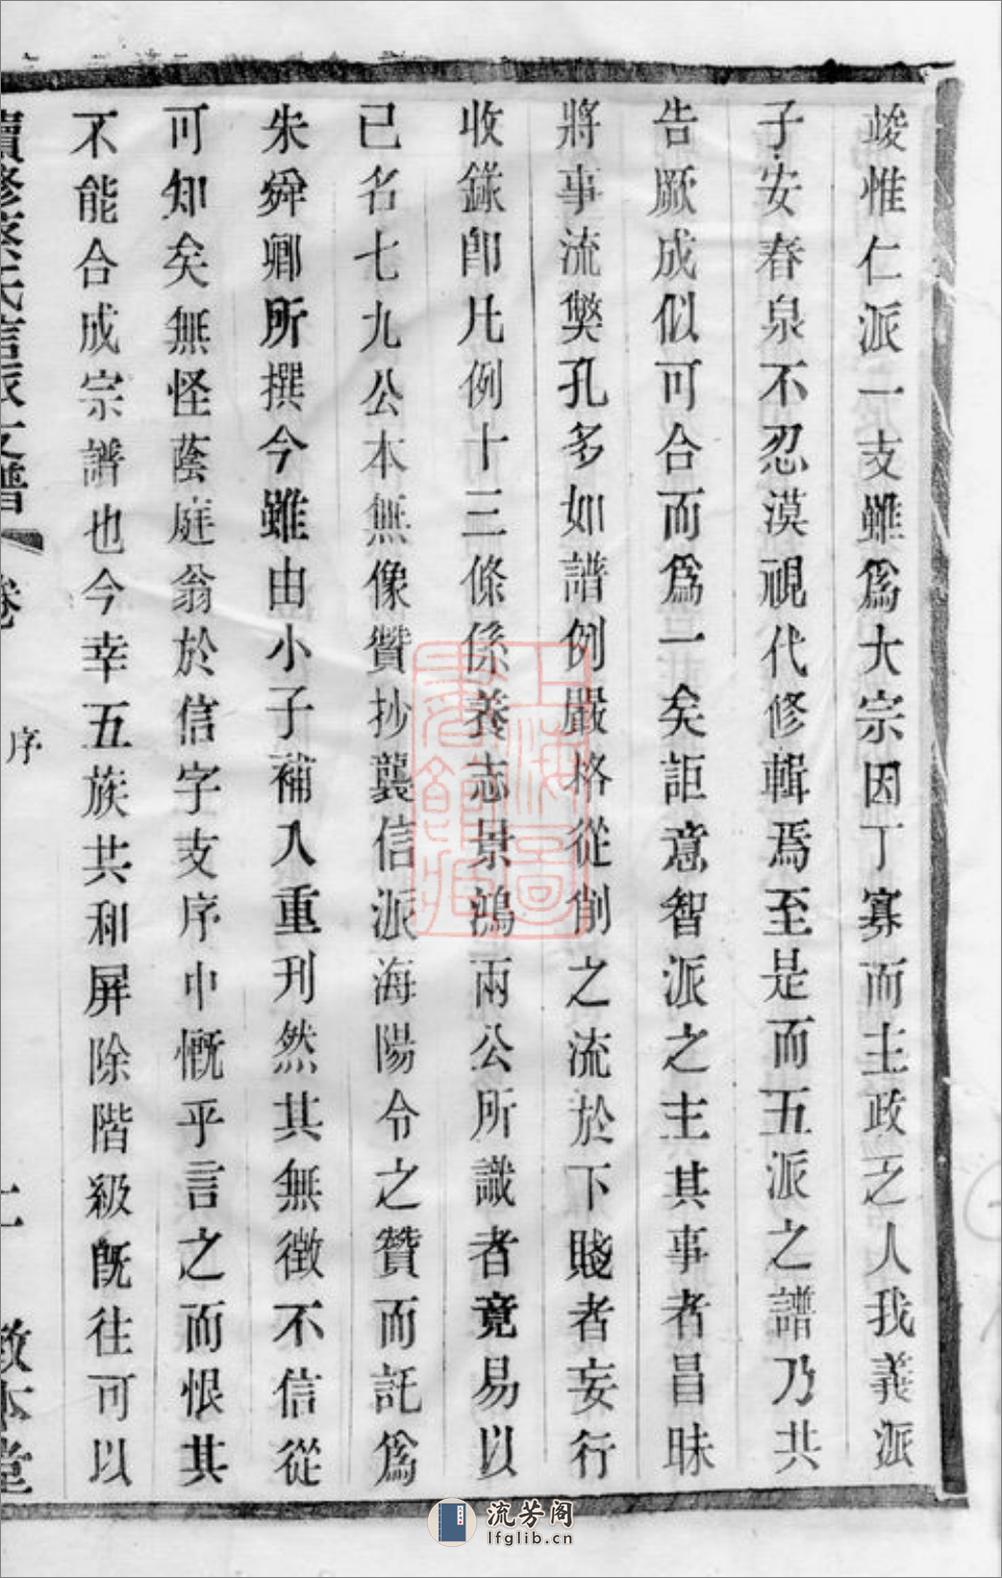 竣惟仁派一支雖爲大宗因丁寡而主政乏人我義派
子安春泉不忍漠視代修輯焉至是而五派之譜乃共
告厥成似可合而爲一矣詎意智派之主其事者昌昧
將事流獘孔多如譜例嚴格從削之流於下賤者妄行
收錄卽凡例十三條係養志景鴻兩公所識者竟易以
已名七九公本無像贊抄襲信派海陽令之贊而託爲
朱舜卿所撰今雖由小子補入重刊然其無徵不信從
可知矣無怪蔭庭翁於信字支序中慨乎言之而恨其
不能合成宗譜也今幸五族共和屏除階級旣往可以
續修蔡氏信派支譜 卷 序 二 敬本堂
上海圖書館藏
流芳阁
lfglib.cn